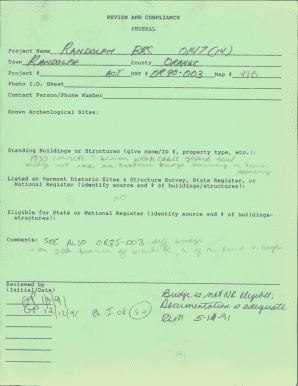 REVIEW AND COMPLIANCE
FEDERAL
Project Name RANDOLPH BRS 0147(14)
Town RANDOLPH County ORANGE
Project # AOT DHP # OR90-003 Map # 476
Photo I.D. Sheet
Contact Person/Phone Number
Known Archeological Sites:
Standing Buildings or Structures (give name/ID #, property type, etc.):
1930 concrete T-beam with cable guard rail
bridge
Listed on Vermont Historic Sites & Structure Survey, State Register, or
National Register (identify source and # of buildings/structures):
NO
Eligible for State or National Register (identify source and # of buildings-
structures):
Comments: SEE ALSO OR85-003 diff bridge
on 2nd branch of White R. S. of
Reviewed by
(Initial/Date)
GP 12/91
GP 12/12/91 Ph. I ok
Bridge is not NR eligible;
Documentation is adequate
RLM 5-14-91